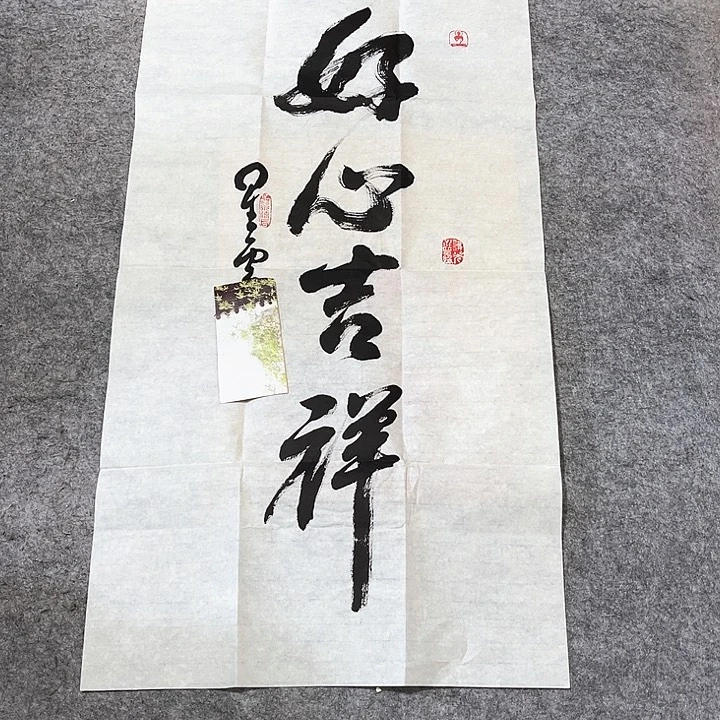 好心吉祥
星雲